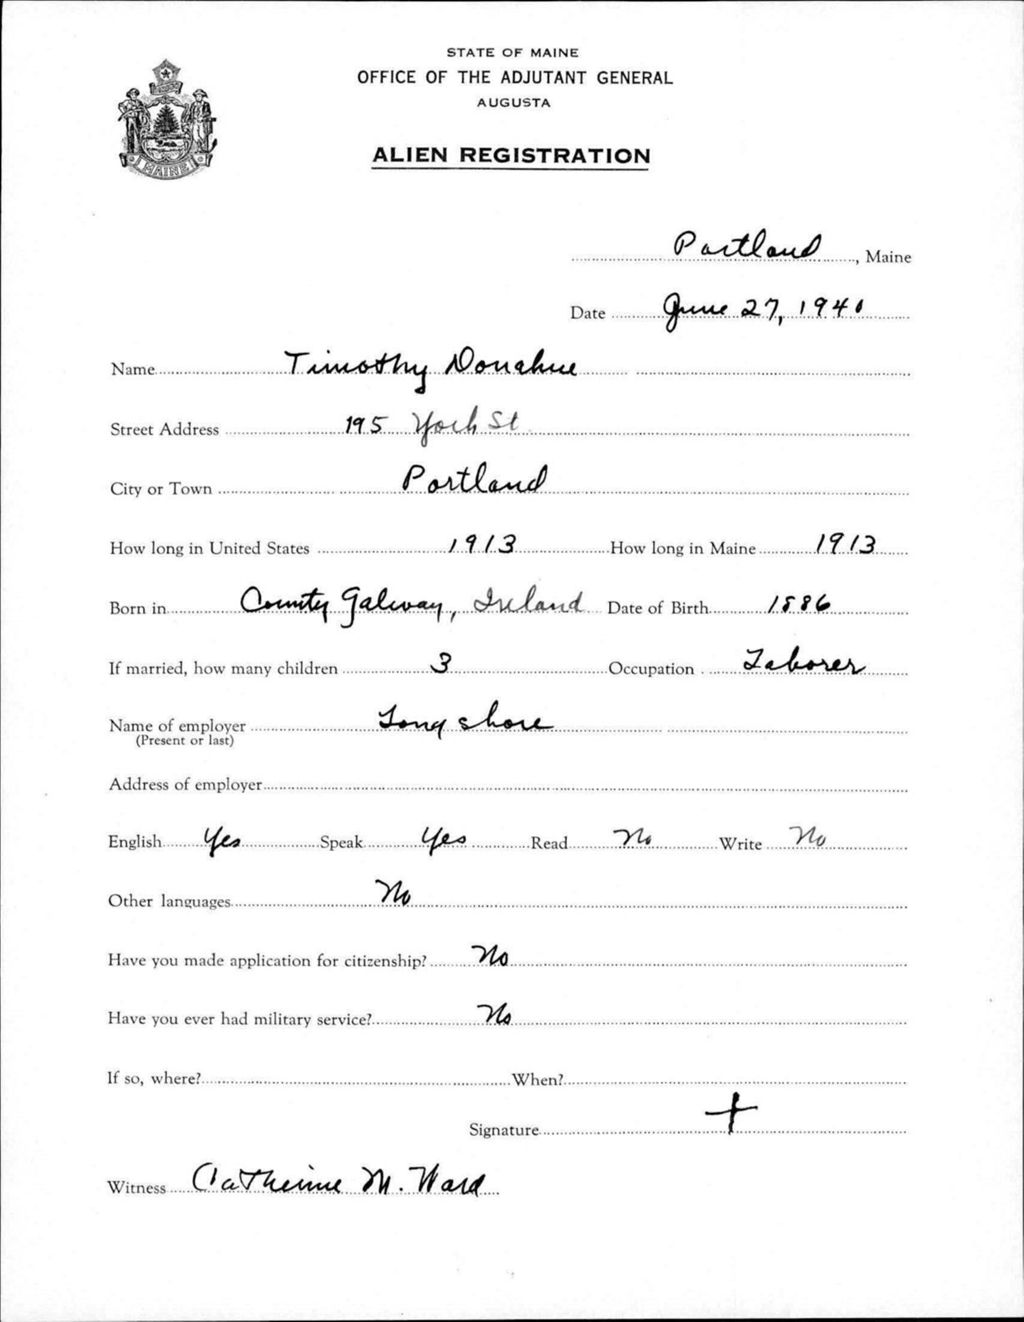 STATE OF MAINE
OFFICE OF THE ADJUTANT GENERAL
AUGUSTA
ALIEN REGISTRATION
MAINE
Portland, Maine
Date June 27, 1940
Name Timothy Donahue
Street Address 195 York St
City or Town Portland
How long in United States 1913 How long in Maine 1913
Born in County Galway, Ireland Date of Birth 1886
If married, how many children 3 Occupation Laborer
Name of employer Long shore
(Present or last)
Address of employer
English Yes Speak Yes Read No Write No
Other languages No
Have you made application for citizenship? No
Have you ever had military service? No
If so, where? When?
Signature +
Witness Catherine M. Ward